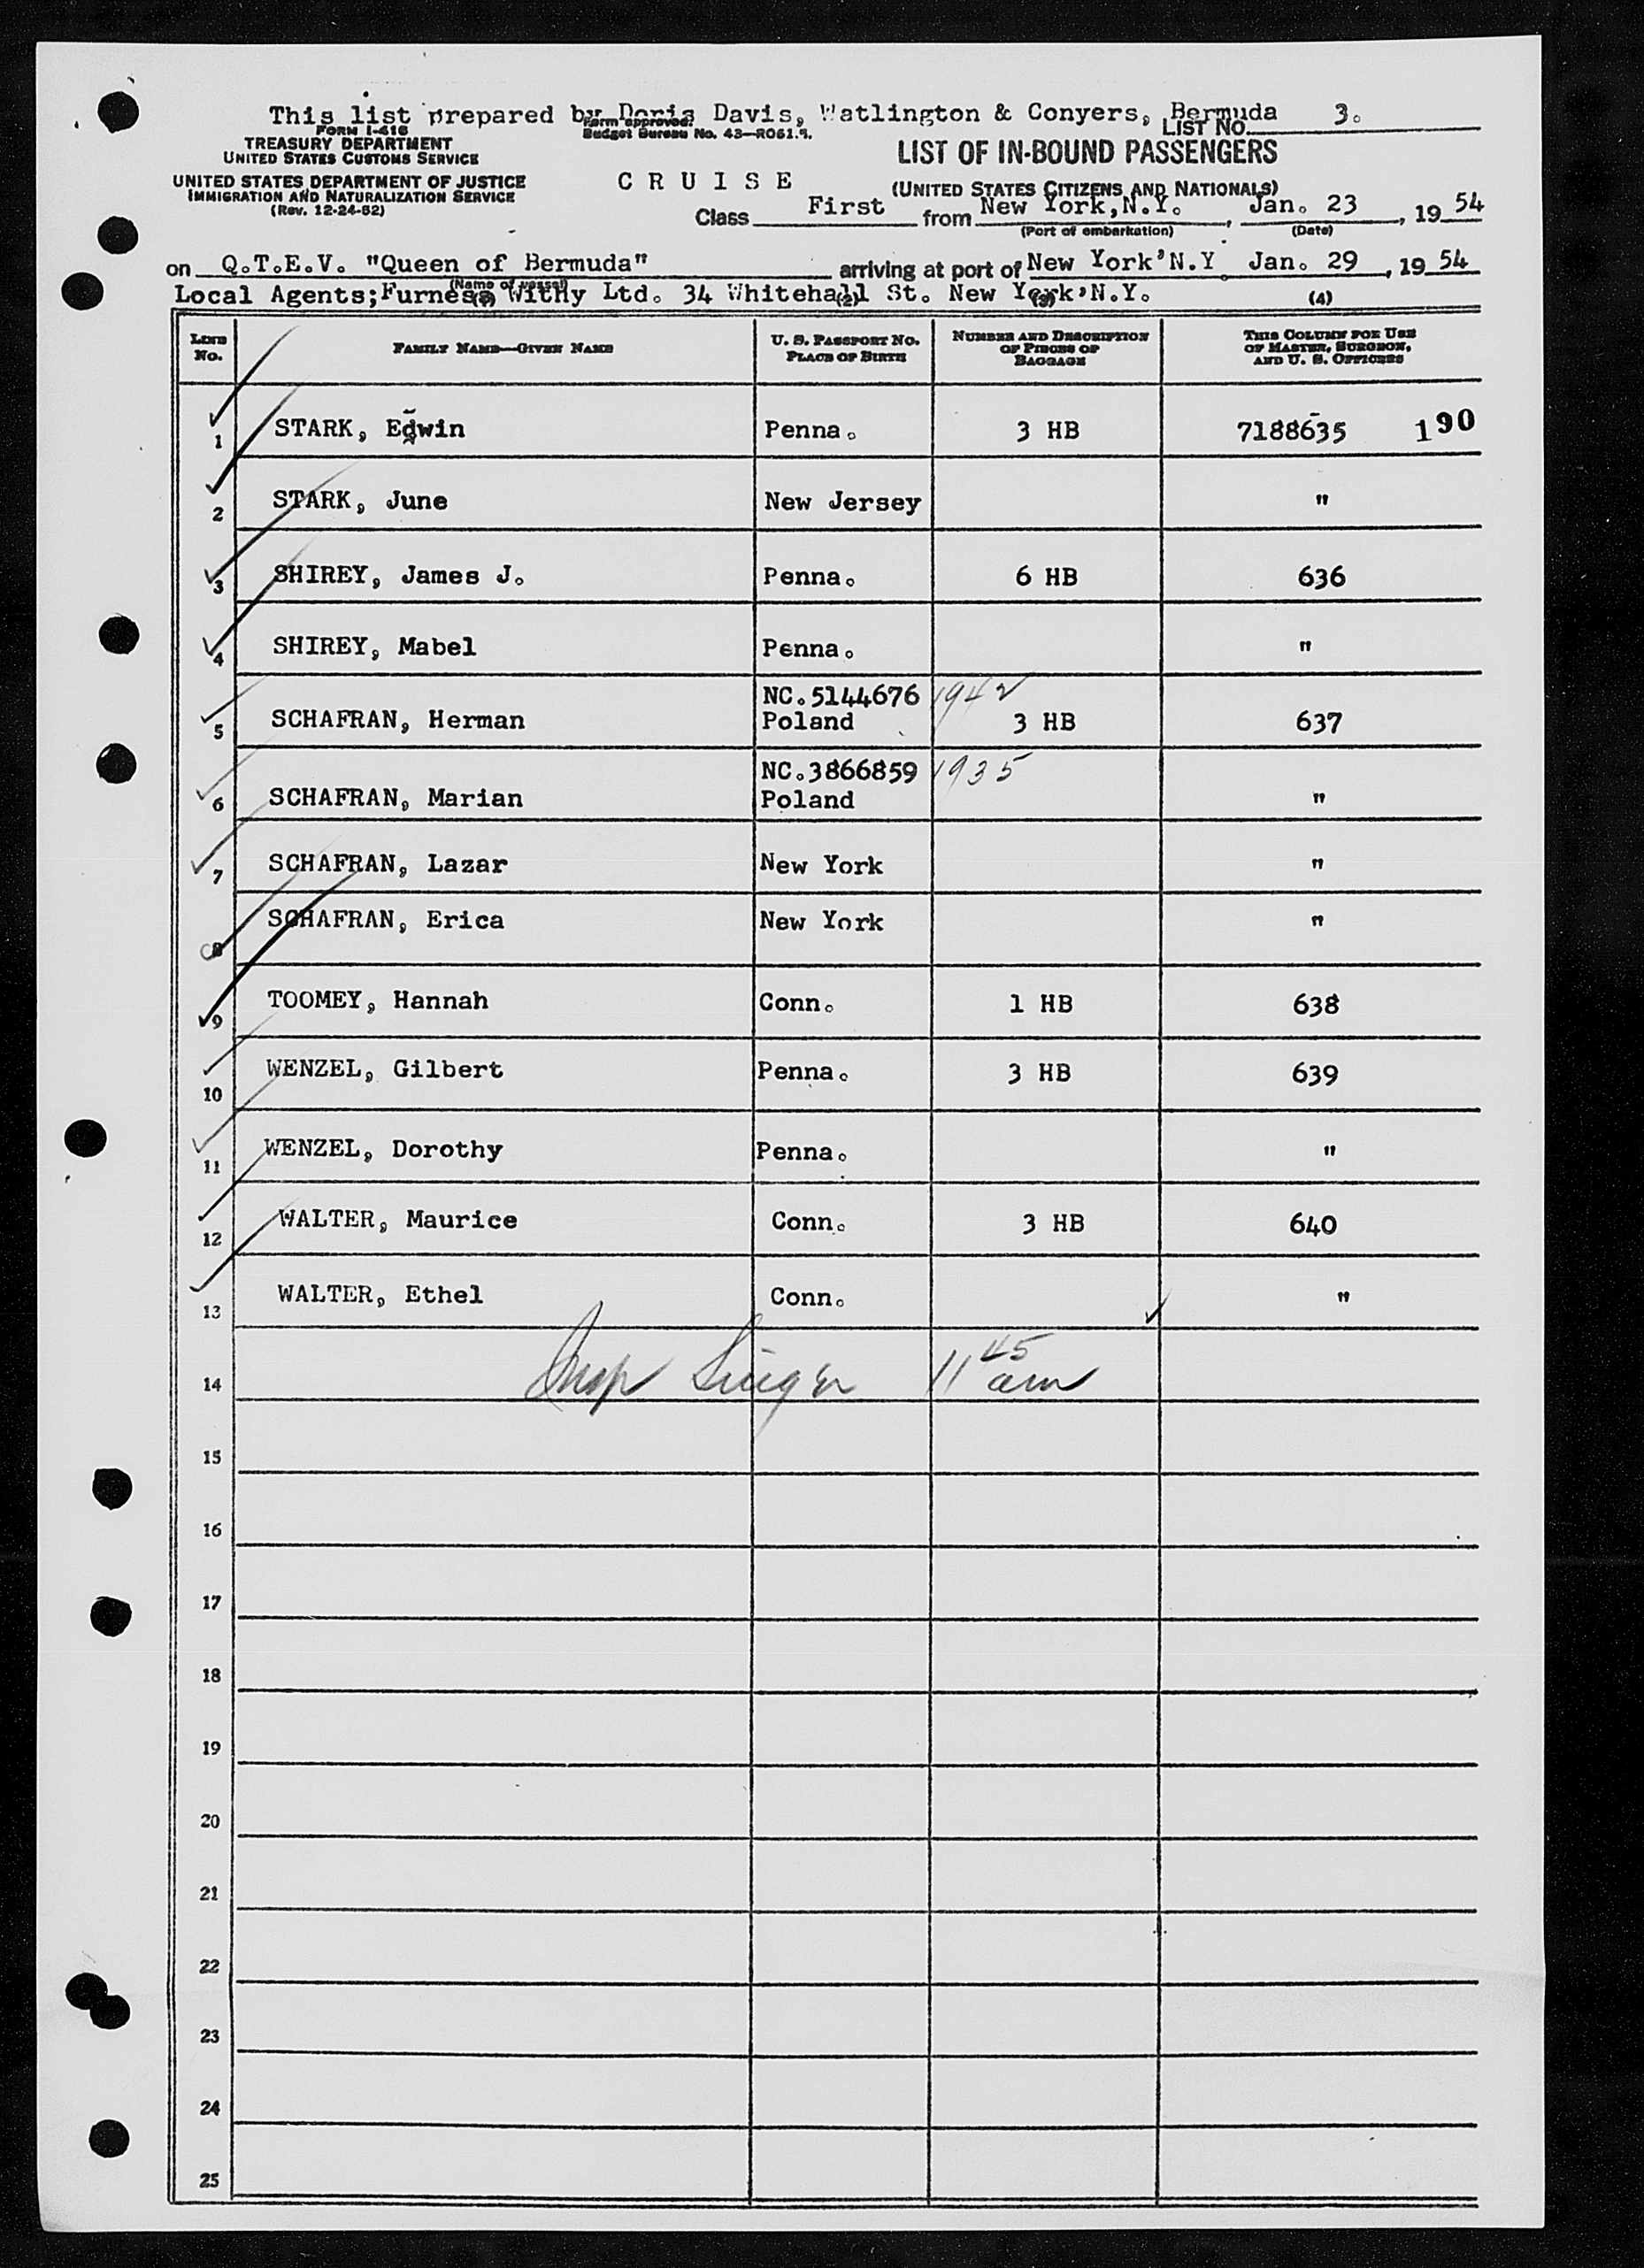 This list prepared by Doris Davis, Watlington & Conyers, Bermuda
LIST NO. 3.
FORM I-416
TREASURY DEPARTMENT
UNITED STATES CUSTOMS SERVICE
UNITED STATES DEPARTMENT OF JUSTICE
IMMIGRATION AND NATURALIZATION SERVICE
(Rev. 12-24-52)
Form approved.
Budget Bureau No. 43—R061.
CRUISE
LIST OF IN-BOUND PASSENGERS
(UNITED STATES CITIZENS AND NATIONALS)
Class First from New York, N.Y. , Jan. 23 , 19 54
(Port of embarkation) (Date)
on Q.T.E.V. "Queen of Bermuda" arriving at port of New York'N.Y. Jan. 29 , 19 54
(Name of vessel)
Local Agents;Furness Withy Ltd. 34 Whitehall St. New York'N.Y.
(1) (2) (3) (4)
LINE No. FAMILY NAME—GIVEN NAME U. S. PASSPORT NO. PLACE OF BIRTH NUMBER AND DESCRIPTION OF PIECES OF BAGGAGE THIS COLUMN FOR USE OF MASTER, SURGEON, AND U. S. OFFICERS
1 STARK, Edwin Penna. 3 HB 7188635 190
2 STARK, June New Jersey "
3 SHIREY, James J. Penna. 6 HB 636
4 SHIREY, Mabel Penna. "
NC.5144676 1942
5 SCHAFRAN, Herman Poland 3 HB 637
NC.3866859 1935
6 SCHAFRAN, Marian Poland "
7 SCHAFRAN, Lazar New York "
8 SCHAFRAN, Erica New York "
9 TOOMEY, Hannah Conn. 1 HB 638
10 WENZEL, Gilbert Penna. 3 HB 639
11 WENZEL, Dorothy Penna. "
12 WALTER, Maurice Conn. 3 HB 640
13 WALTER, Ethel Conn. "
14 Insp Singer 11 45 am
15
16
17
18
19
20
21
22
23
24
25